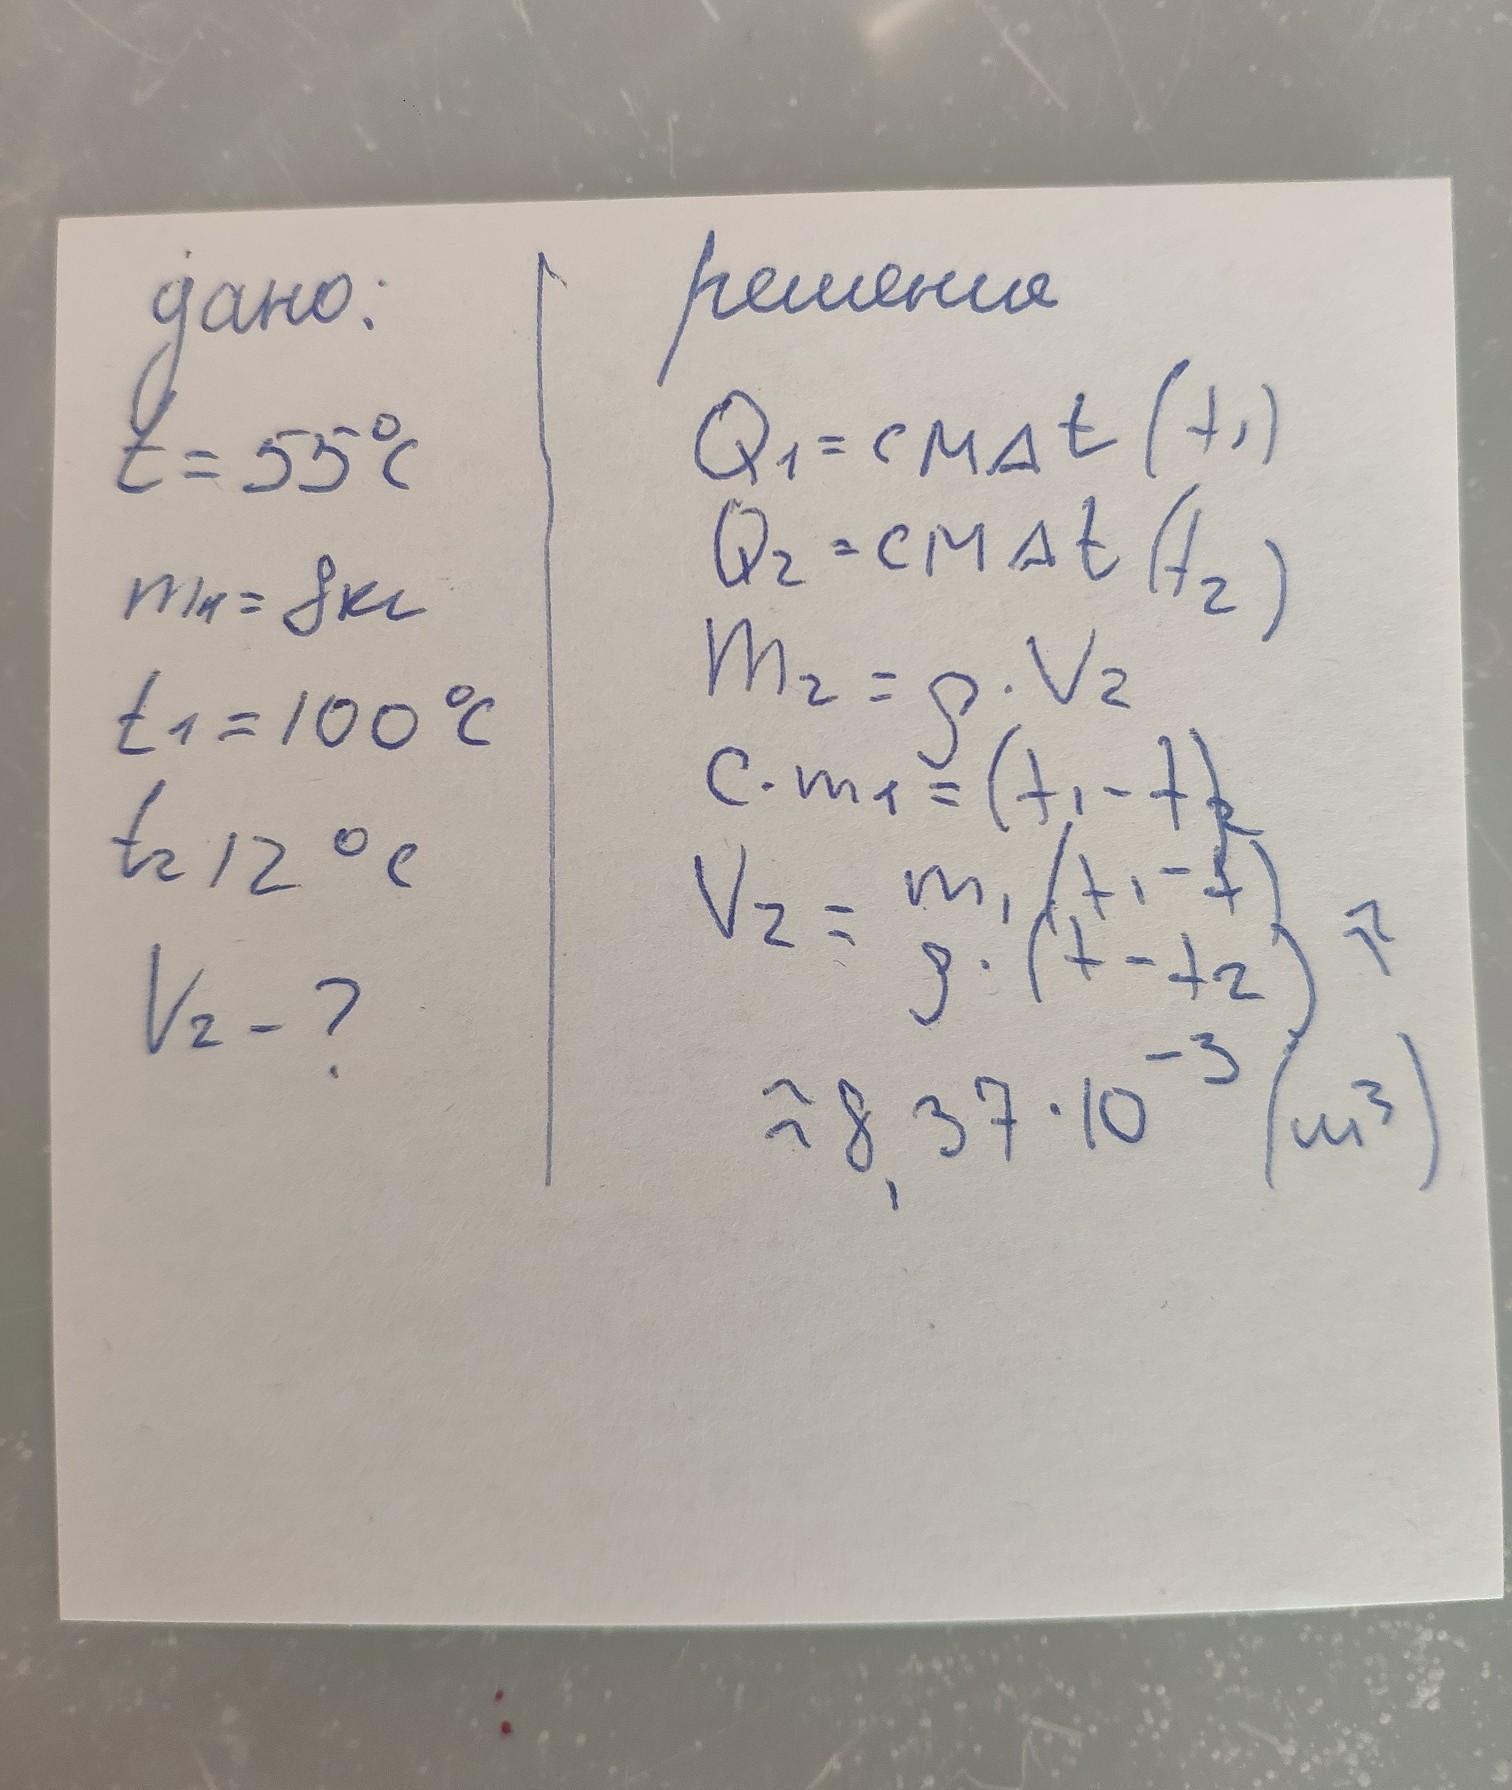 дано:
t = 55°C
m1 = 8кг
t1 = 100°C
t2 12°C
V2 - ?
решение
Q1 = cмΔt (t1)
Q2 = cмΔt (t2)
m2 = ρ · V2
c · m1 = (t1 - t)
V2 = m1 (t1 - t) / ρ · (t - t2) ≈
≈ 8,37 · 10⁻³ (м³)